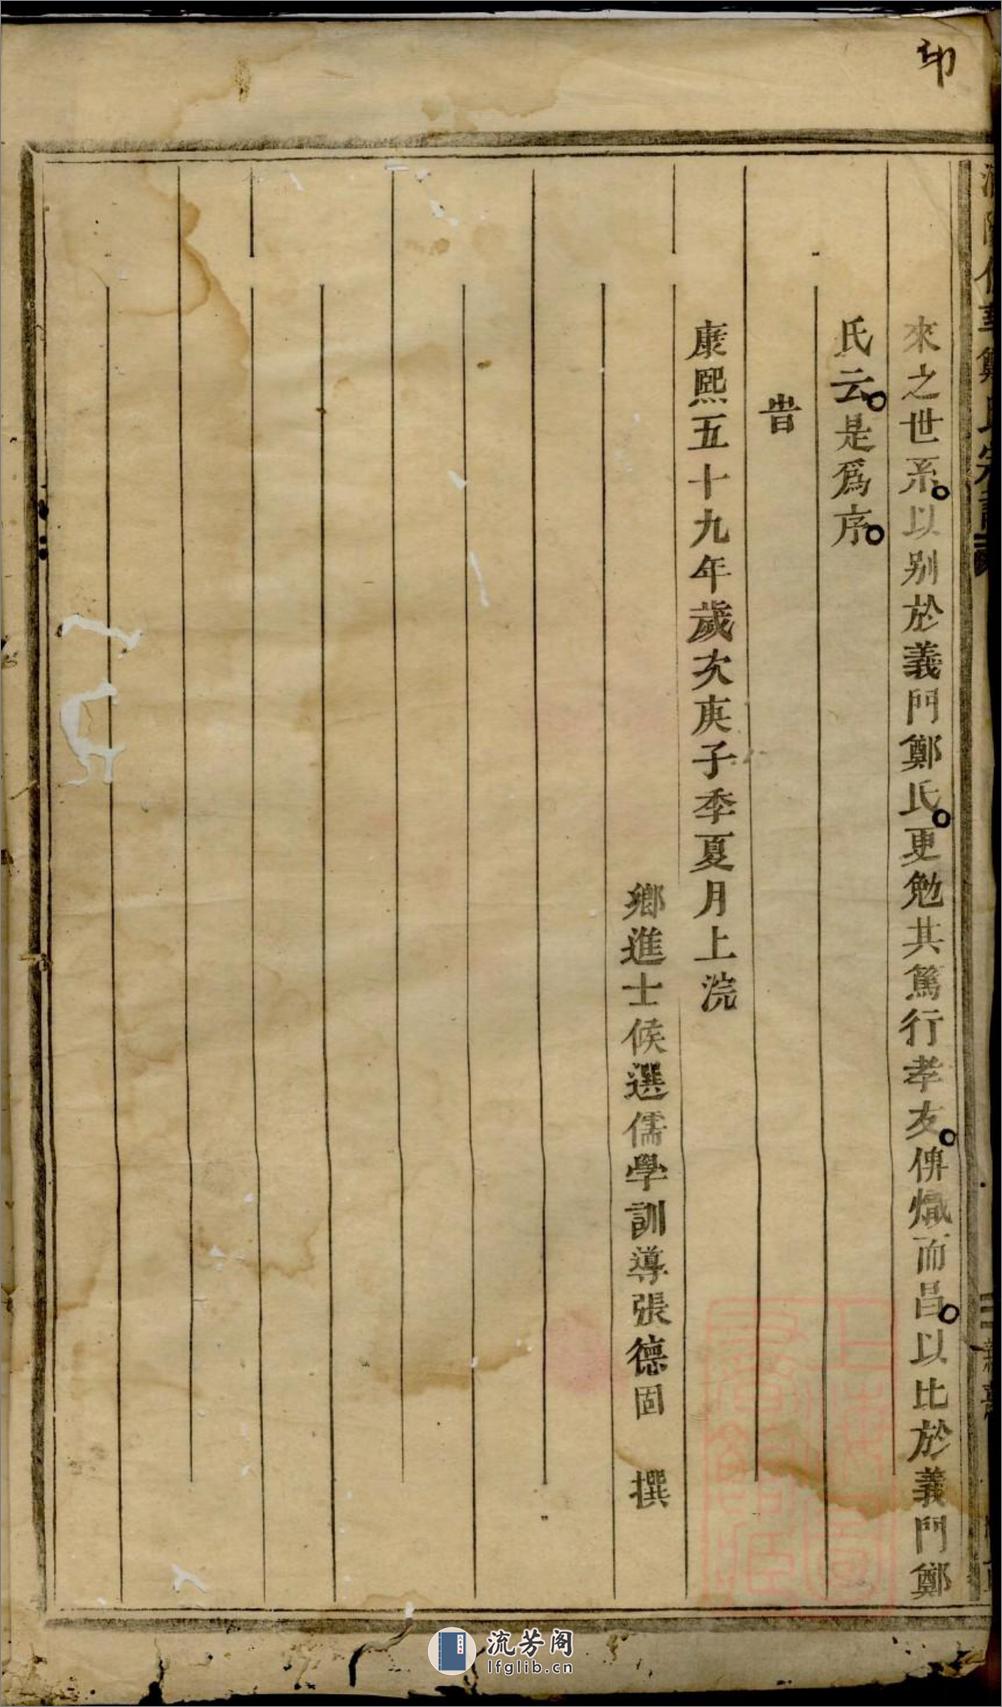 印
來之世系。以别於義門鄭氏。更勉其篤行孝友。俾熾而昌。以比於義門鄭
氏云。是爲序。
旹
康熙五十九年歲次庚子季夏月上浣
鄉進士候選儒學訓導張德固　撰
流芳阁
lfglib.cn